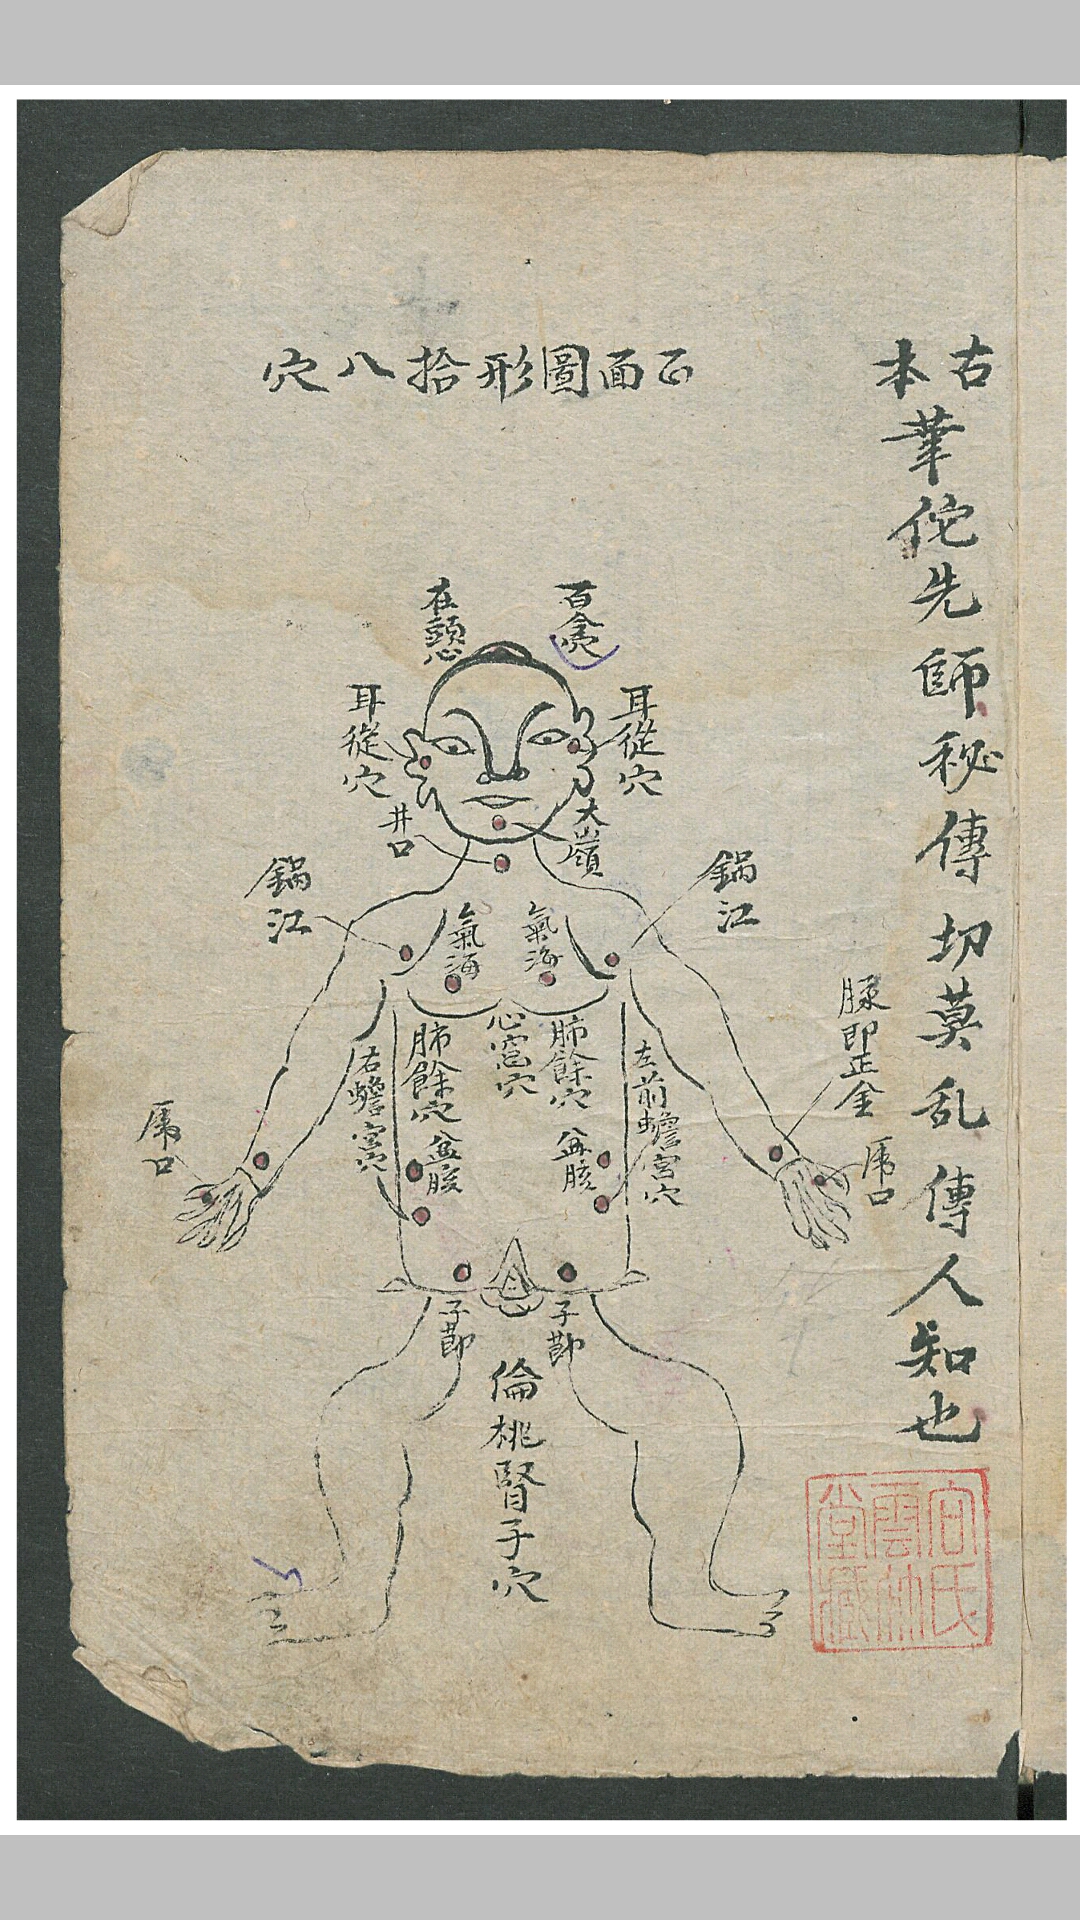 古本華佗先師秘傳切莫乱傳人知也
正面圖形拾八穴
百會穴
在頭心
耳從穴
耳從穴
大嶺
井口
鍋江
鍋江
氣海
氣海
心窩穴
肺餘穴
肺餘穴
左前蟾宮穴
右蟾宮穴
盆胲
盆胲
脉即正金
虎口
虎口
子節
子節
倫桃腎子穴
宫氏雲
堂藏